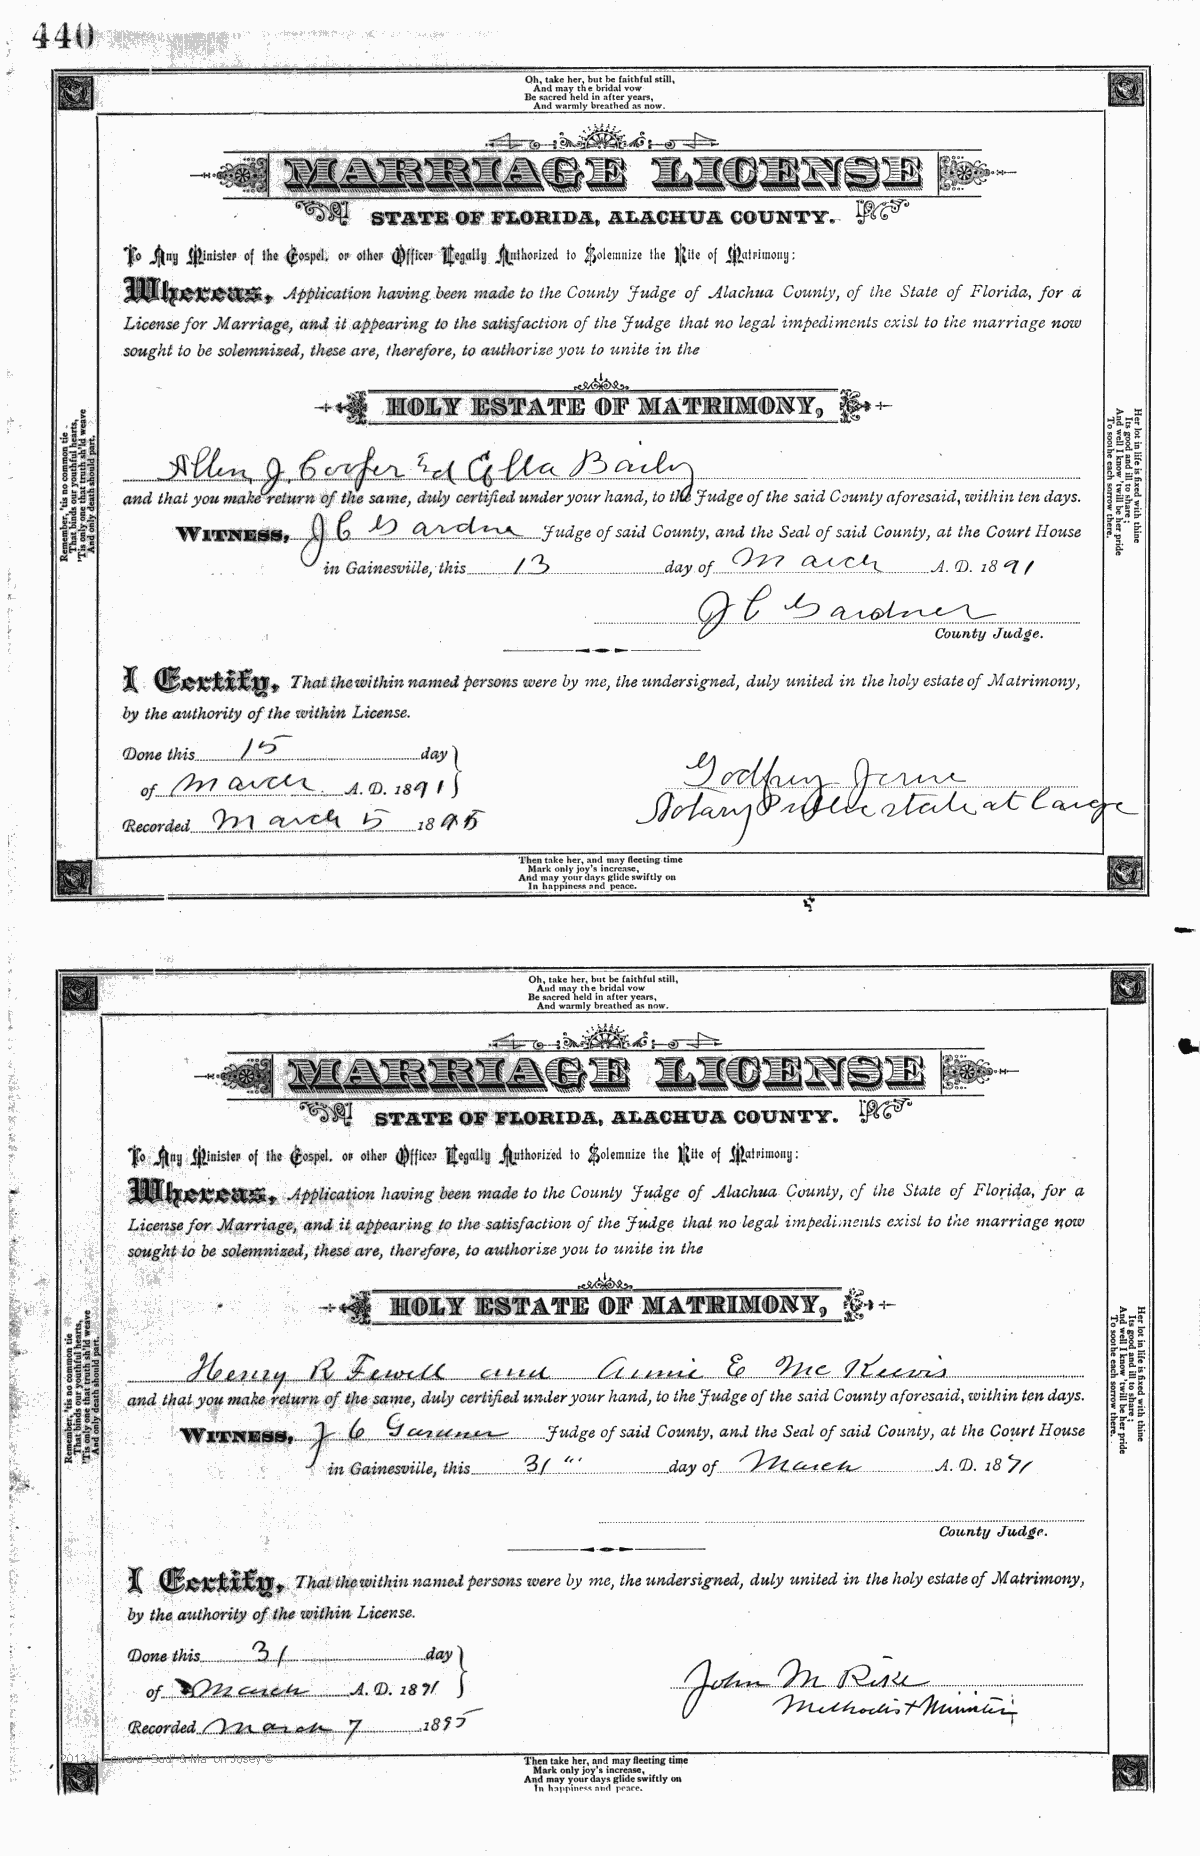 440
Oh, take her, but be faithful still,
And may the bridal vow
Be sacred held in after years,
And warmly breathed as now.
MARRIAGE LICENSE
STATE OF FLORIDA, ALACHUA COUNTY.
To Any Minister of the Gospel, or other Officer Legally Authorized to Solemnize the Rite of Matrimony:
Whereas, Application having been made to the County Judge of Alachua County, of the State of Florida, for a
License for Marriage, and it appearing to the satisfaction of the Judge that no legal impediments exist to the marriage now
sought to be solemnized, these are, therefore, to authorize you to unite in the
HOLY ESTATE OF MATRIMONY,
Allen J. Cooper Ed Ella Baily
and that you make return of the same, duly certified under your hand, to the Judge of the said County aforesaid, within ten days.
WITNESS, J C Gardner Judge of said County, and the Seal of said County, at the Court House
in Gainesville, this 13 day of March A. D. 1891
J C Gardner
County Judge.
I Certify, That the within named persons were by me, the undersigned, duly united in the holy estate of Matrimony,
by the authority of the within License.
Done this 15 day
of March A. D. 1891
Godfrey
Notary Public state at Large
Recorded March 5 1895
Remember, 'tis no common tie
That binds our youthful hearts,
'Tis only one that truth sh'ld weave
And only death should part.
Her lot in life is fixed with thine
Its good and ill to share;
And well I know 'twill be her pride
To soothe each sorrow there.
Then take her, and may fleeting time
Mark only joy's increase,
And may your days glide swiftly on
In happiness and peace.
Oh, take her, but be faithful still,
And may the bridal vow
Be sacred held in after years,
And warmly breathed as now.
MARRIAGE LICENSE
STATE OF FLORIDA, ALACHUA COUNTY.
To Any Minister of the Gospel, or other Officer Legally Authorized to Solemnize the Rite of Matrimony:
Whereas, Application having been made to the County Judge of Alachua County, of the State of Florida, for a
License for Marriage, and it appearing to the satisfaction of the Judge that no legal impediments exist to the marriage now
sought to be solemnized, these are, therefore, to authorize you to unite in the
HOLY ESTATE OF MATRIMONY,
Henry R Fewell and Annie E
and that you make return of the same, duly certified under your hand, to the Judge of the said County aforesaid, within ten days.
WITNESS, J C Gardner Judge of said County, and the Seal of said County, at the Court House
in Gainesville, this 31 " day of March A. D. 1891
County Judge.
I Certify, That the within named persons were by me, the undersigned, duly united in the holy estate of Matrimony,
by the authority of the within License.
Done this 31 day
of March A. D. 1891
John M
Methodist Minister
Recorded March 7 1895
Remember, 'tis no common tie
That binds our youthful hearts,
'Tis only one that truth sh'ld weave
And only death should part.
Her lot in life is fixed with thine
Its good and ill to share;
And well I know 'twill be her pride
To soothe each sorrow there.
Then take her, and may fleeting time
Mark only joy's increase,
And may your days glide swiftly on
In happiness and peace.